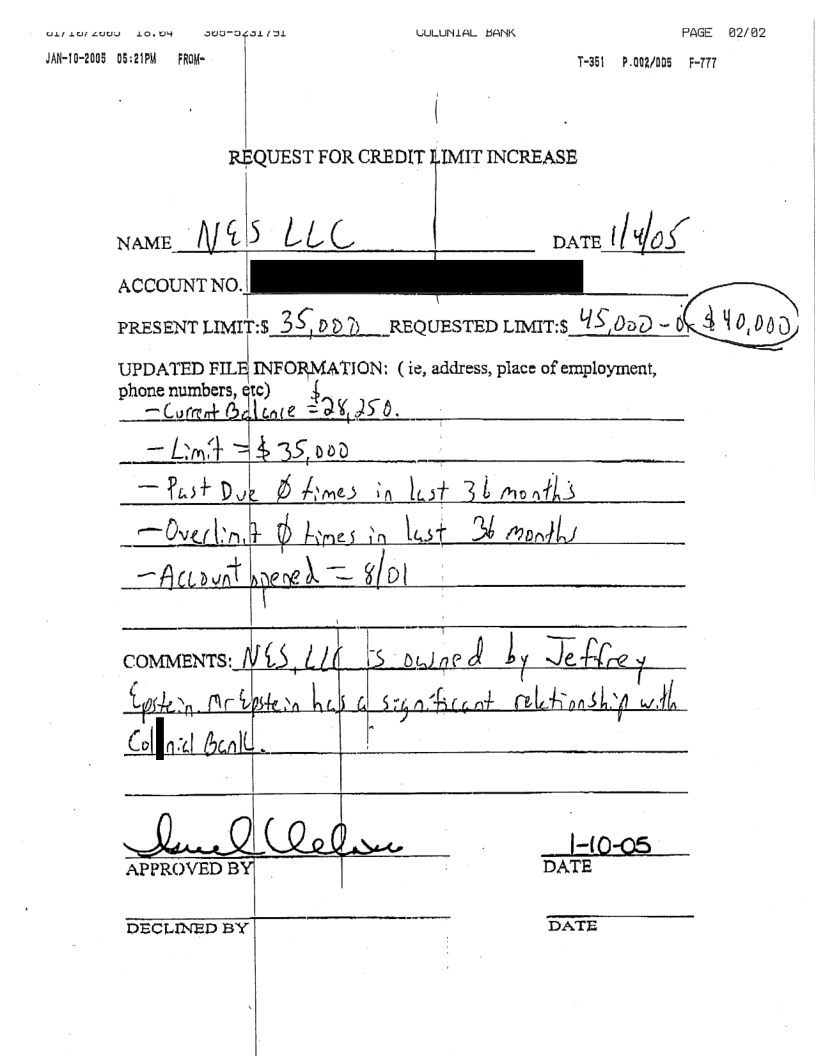 01/10/2005 18:04 305-5231791 COLONIAL BANK PAGE 02/02
JAN-10-2005 05:21PM FROM- T-351 P.002/005 F-777
REQUEST FOR CREDIT LIMIT INCREASE
NAME NES LLC DATE 1/4/05
ACCOUNT NO.
PRESENT LIMIT:$ 35,000 REQUESTED LIMIT:$ 45,000 - or $40,000
UPDATED FILE INFORMATION: ( ie, address, place of employment,
phone numbers, etc)
- Current Balance = $28,250.
- Limit = $35,000
- Past Due Ø times in last 36 months
- Overlimit Ø times in last 36 months
- Account opened = 8/01
COMMENTS: NES, LLC is owned by Jeffrey
Epstein. Mr Epstein has a significant relationship with
Colonial Bank.
APPROVED BY 1-10-05 DATE
DECLINED BY DATE